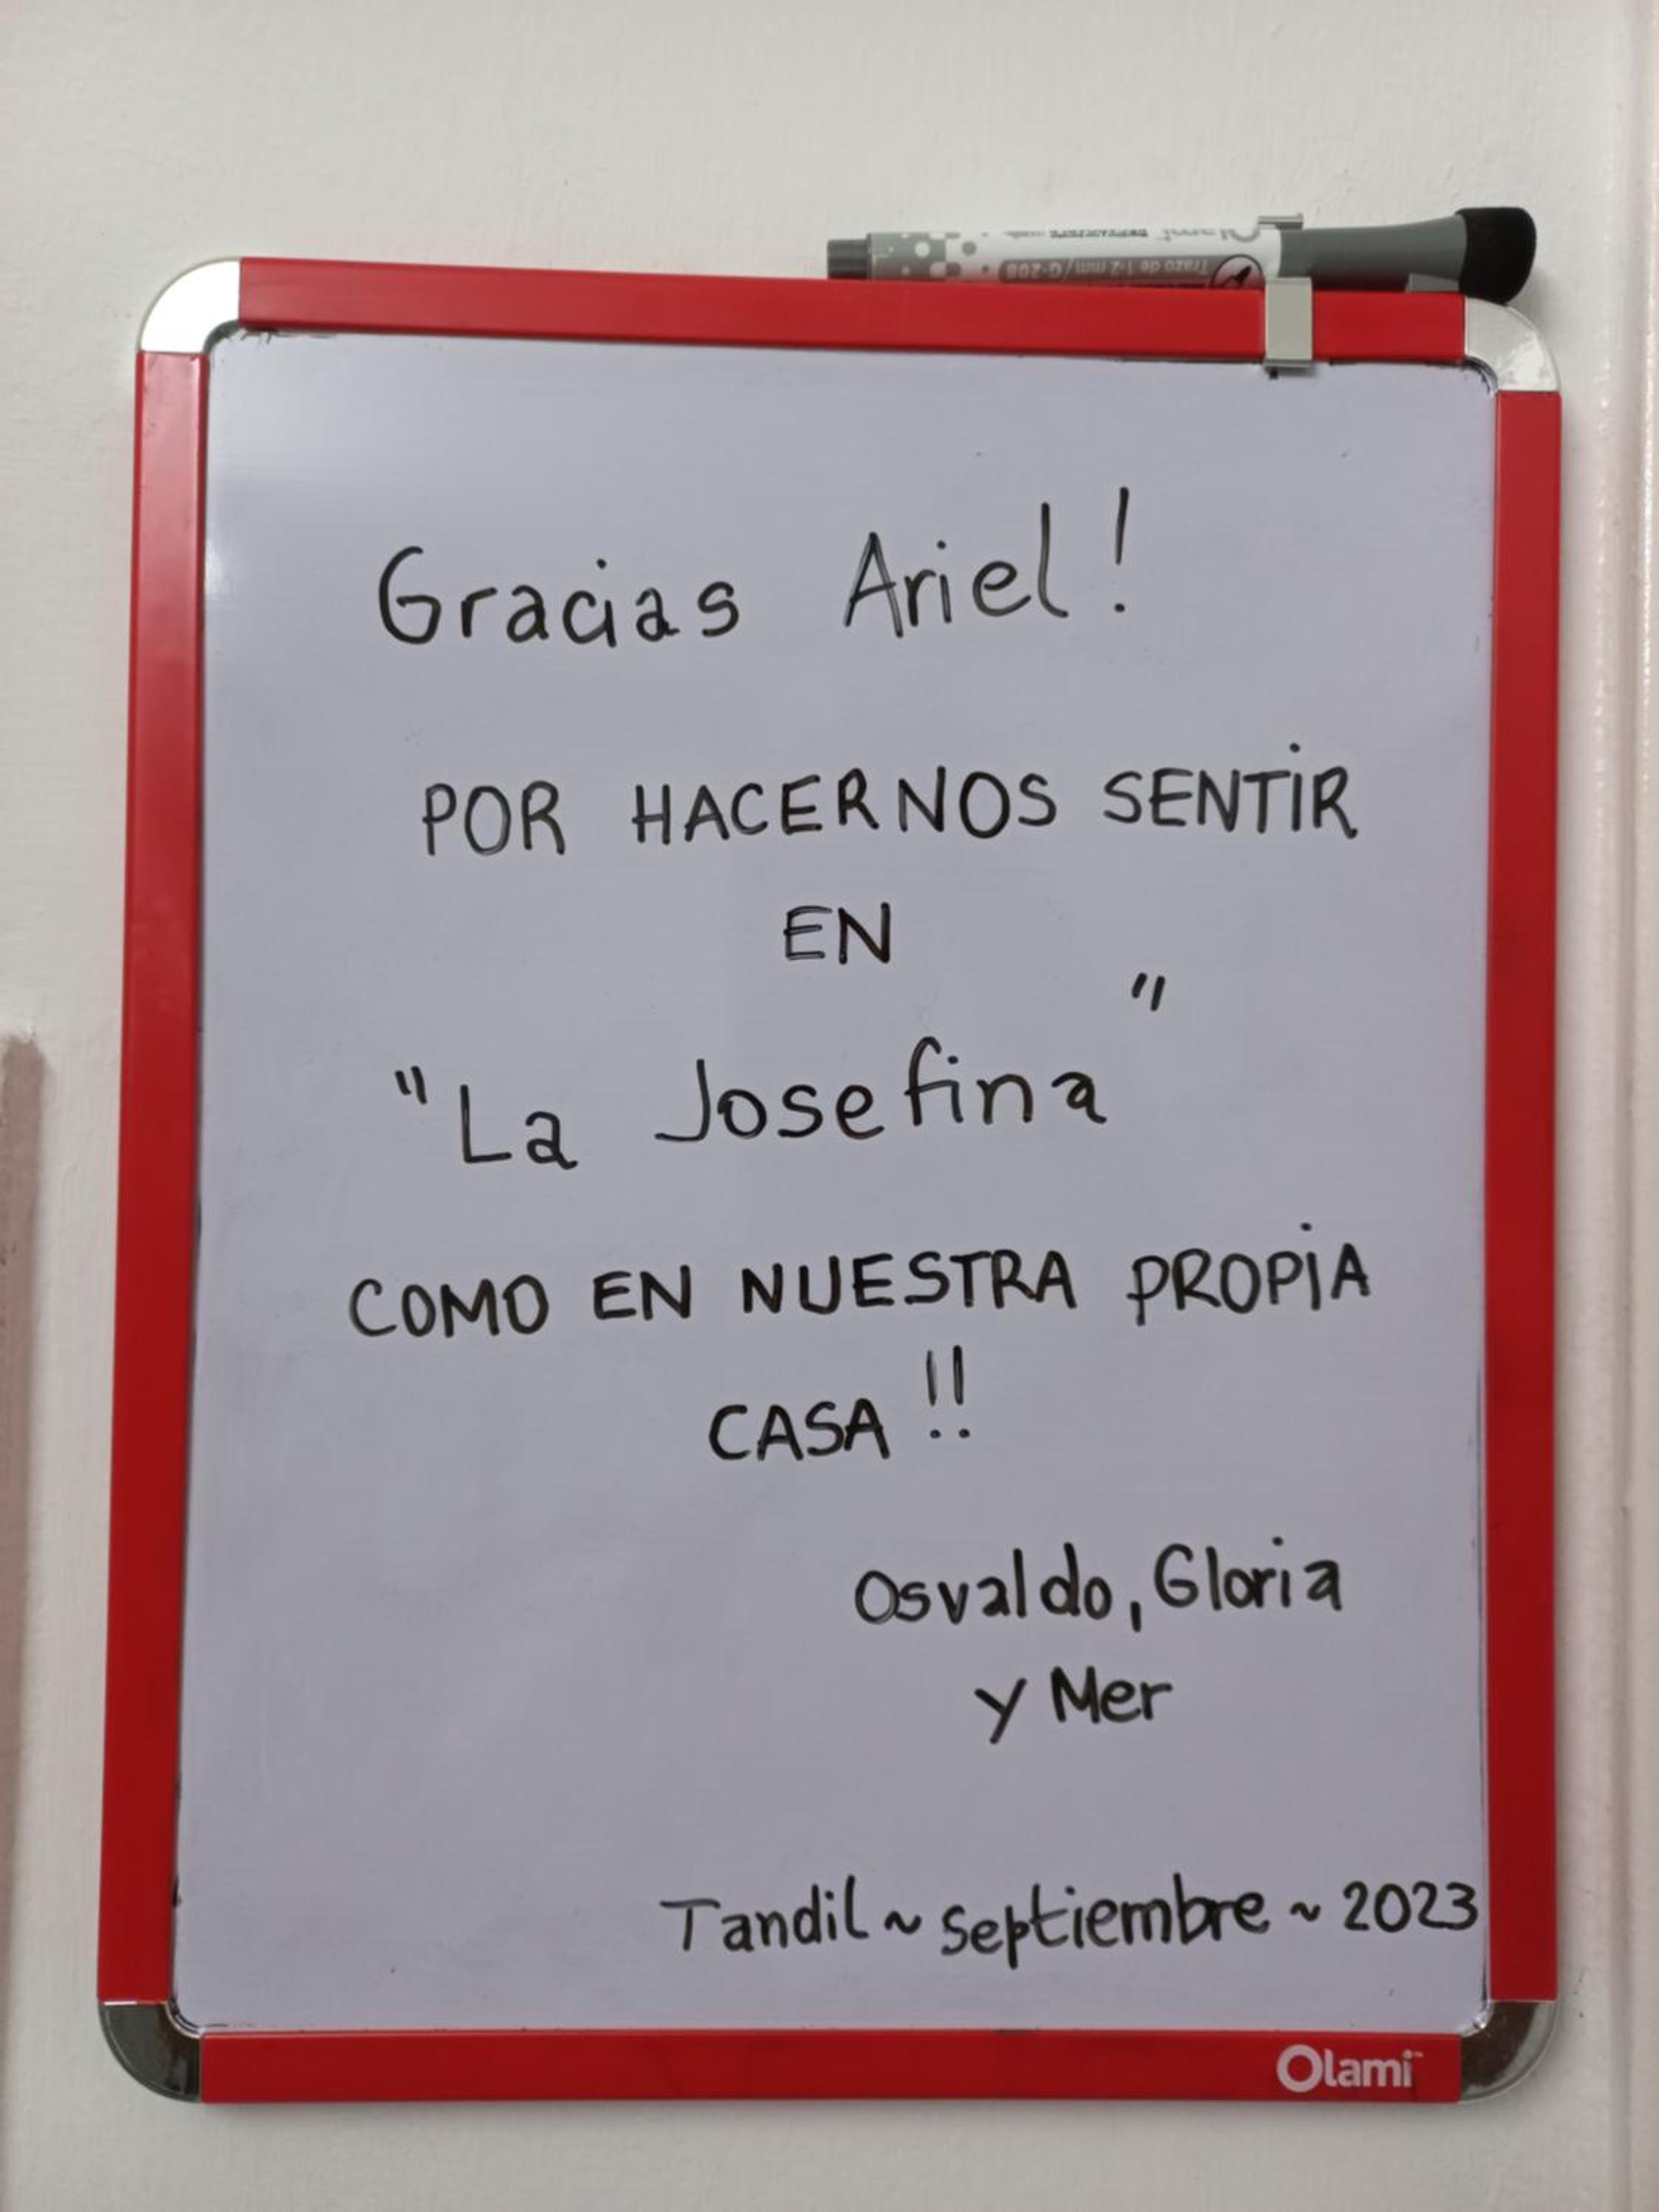 Olami
Trazo de 1-2 mm/G-208
Gracias Ariel!
POR HACERNOS SENTIR
EN
"La Josefina"
COMO EN NUESTRA PROPIA
CASA!!
Osvaldo, Gloria
y Mer
Tandil ~ septiembre ~ 2023
Olami™